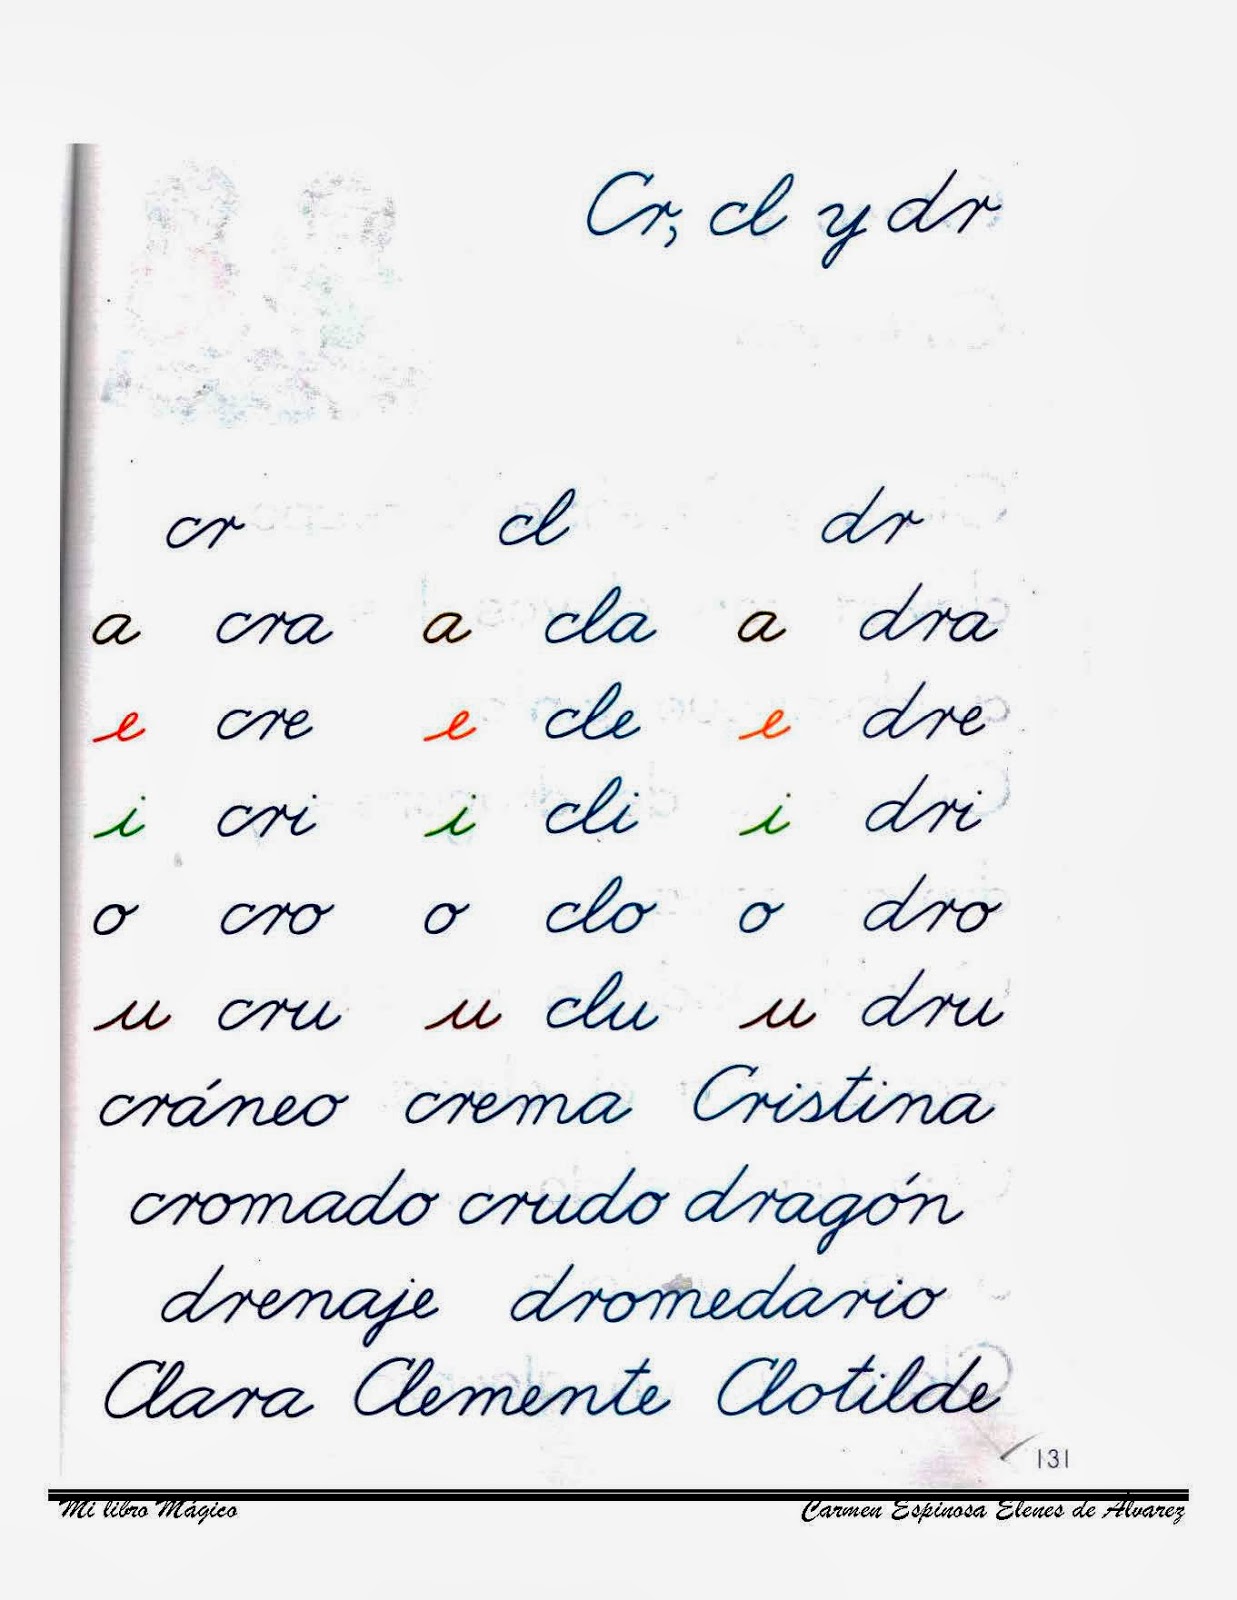 Cr, cl y dr
cr cl dr
a cra a cla a dra
e cre e cle e dre
i cri i cli i dri
o cro o clo o dro
u cru u clu u dru
cráneo crema Cristina
cromado crudo dragón
drenaje dromedario
Clara Clemente Clotilde
131
Mi libro Mágico Carmen Espinosa Elenes de Álvarez